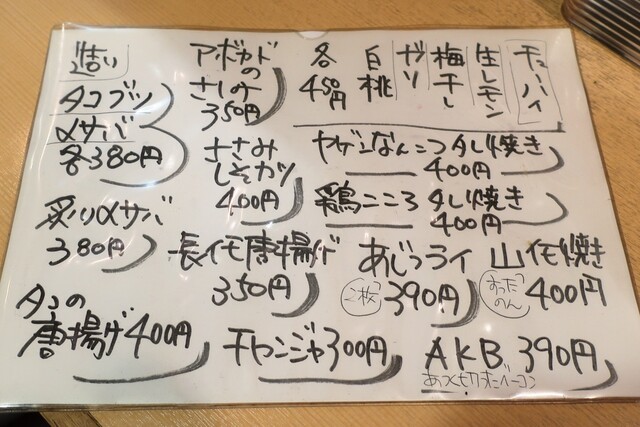 チューハイ
生レモン
梅干し
ガリ
白桃
各
450円
アボカド
の
さしみ
350円
造り
タコブツ
〆サバ
各380円
ヤゲンなんこつタレ焼き
400円
ささみ
しそカツ
400円
鶏こころタレ焼き
400円
炙り〆サバ
380円
長イモ唐揚げ
350円
あじフライ
2枚
390円
山イモ焼き
すった
のん
400円
タコの
唐揚げ400円
チャンジャ300円
AKB 390円
あつ切りベーコン